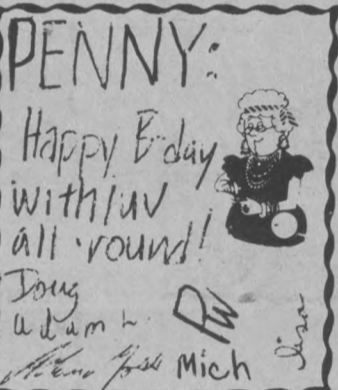 PENNY:
Happy B-day
with luv
all 'round!
Doug
adam L.
PW
Mich
lisa